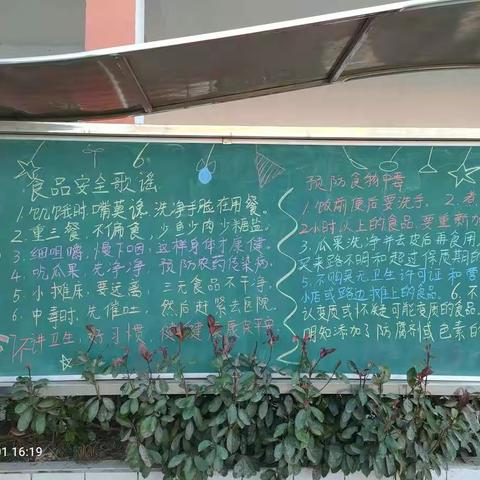 食品安全歌谣
1.饥饿时,嘴莫谗,洗净手脸在用餐。
2.重三餐、不偏食,少鱼少肉少糖盐。
3.细咀嚼,慢下咽,这样身体才康健。
4.吃瓜果、先净净,预防农药传染病。
5.小摊床、要远离 三无食品不干净,
6.中毒时,先催吐, 然后赶紧去医院。
讲卫生,好习惯,
预防食物中毒
1.饭前便后要洗手。2.煮
2小时以上的食品,要重新加
3.瓜果洗净并去皮后再食用
买来路不明和超过保质期的
5.不购买无卫生许可证和营
小店或路边摊上的食品。6.不
认变质或怀疑可能变质的食品
明知添加了防腐剂或色素的
01 16:19